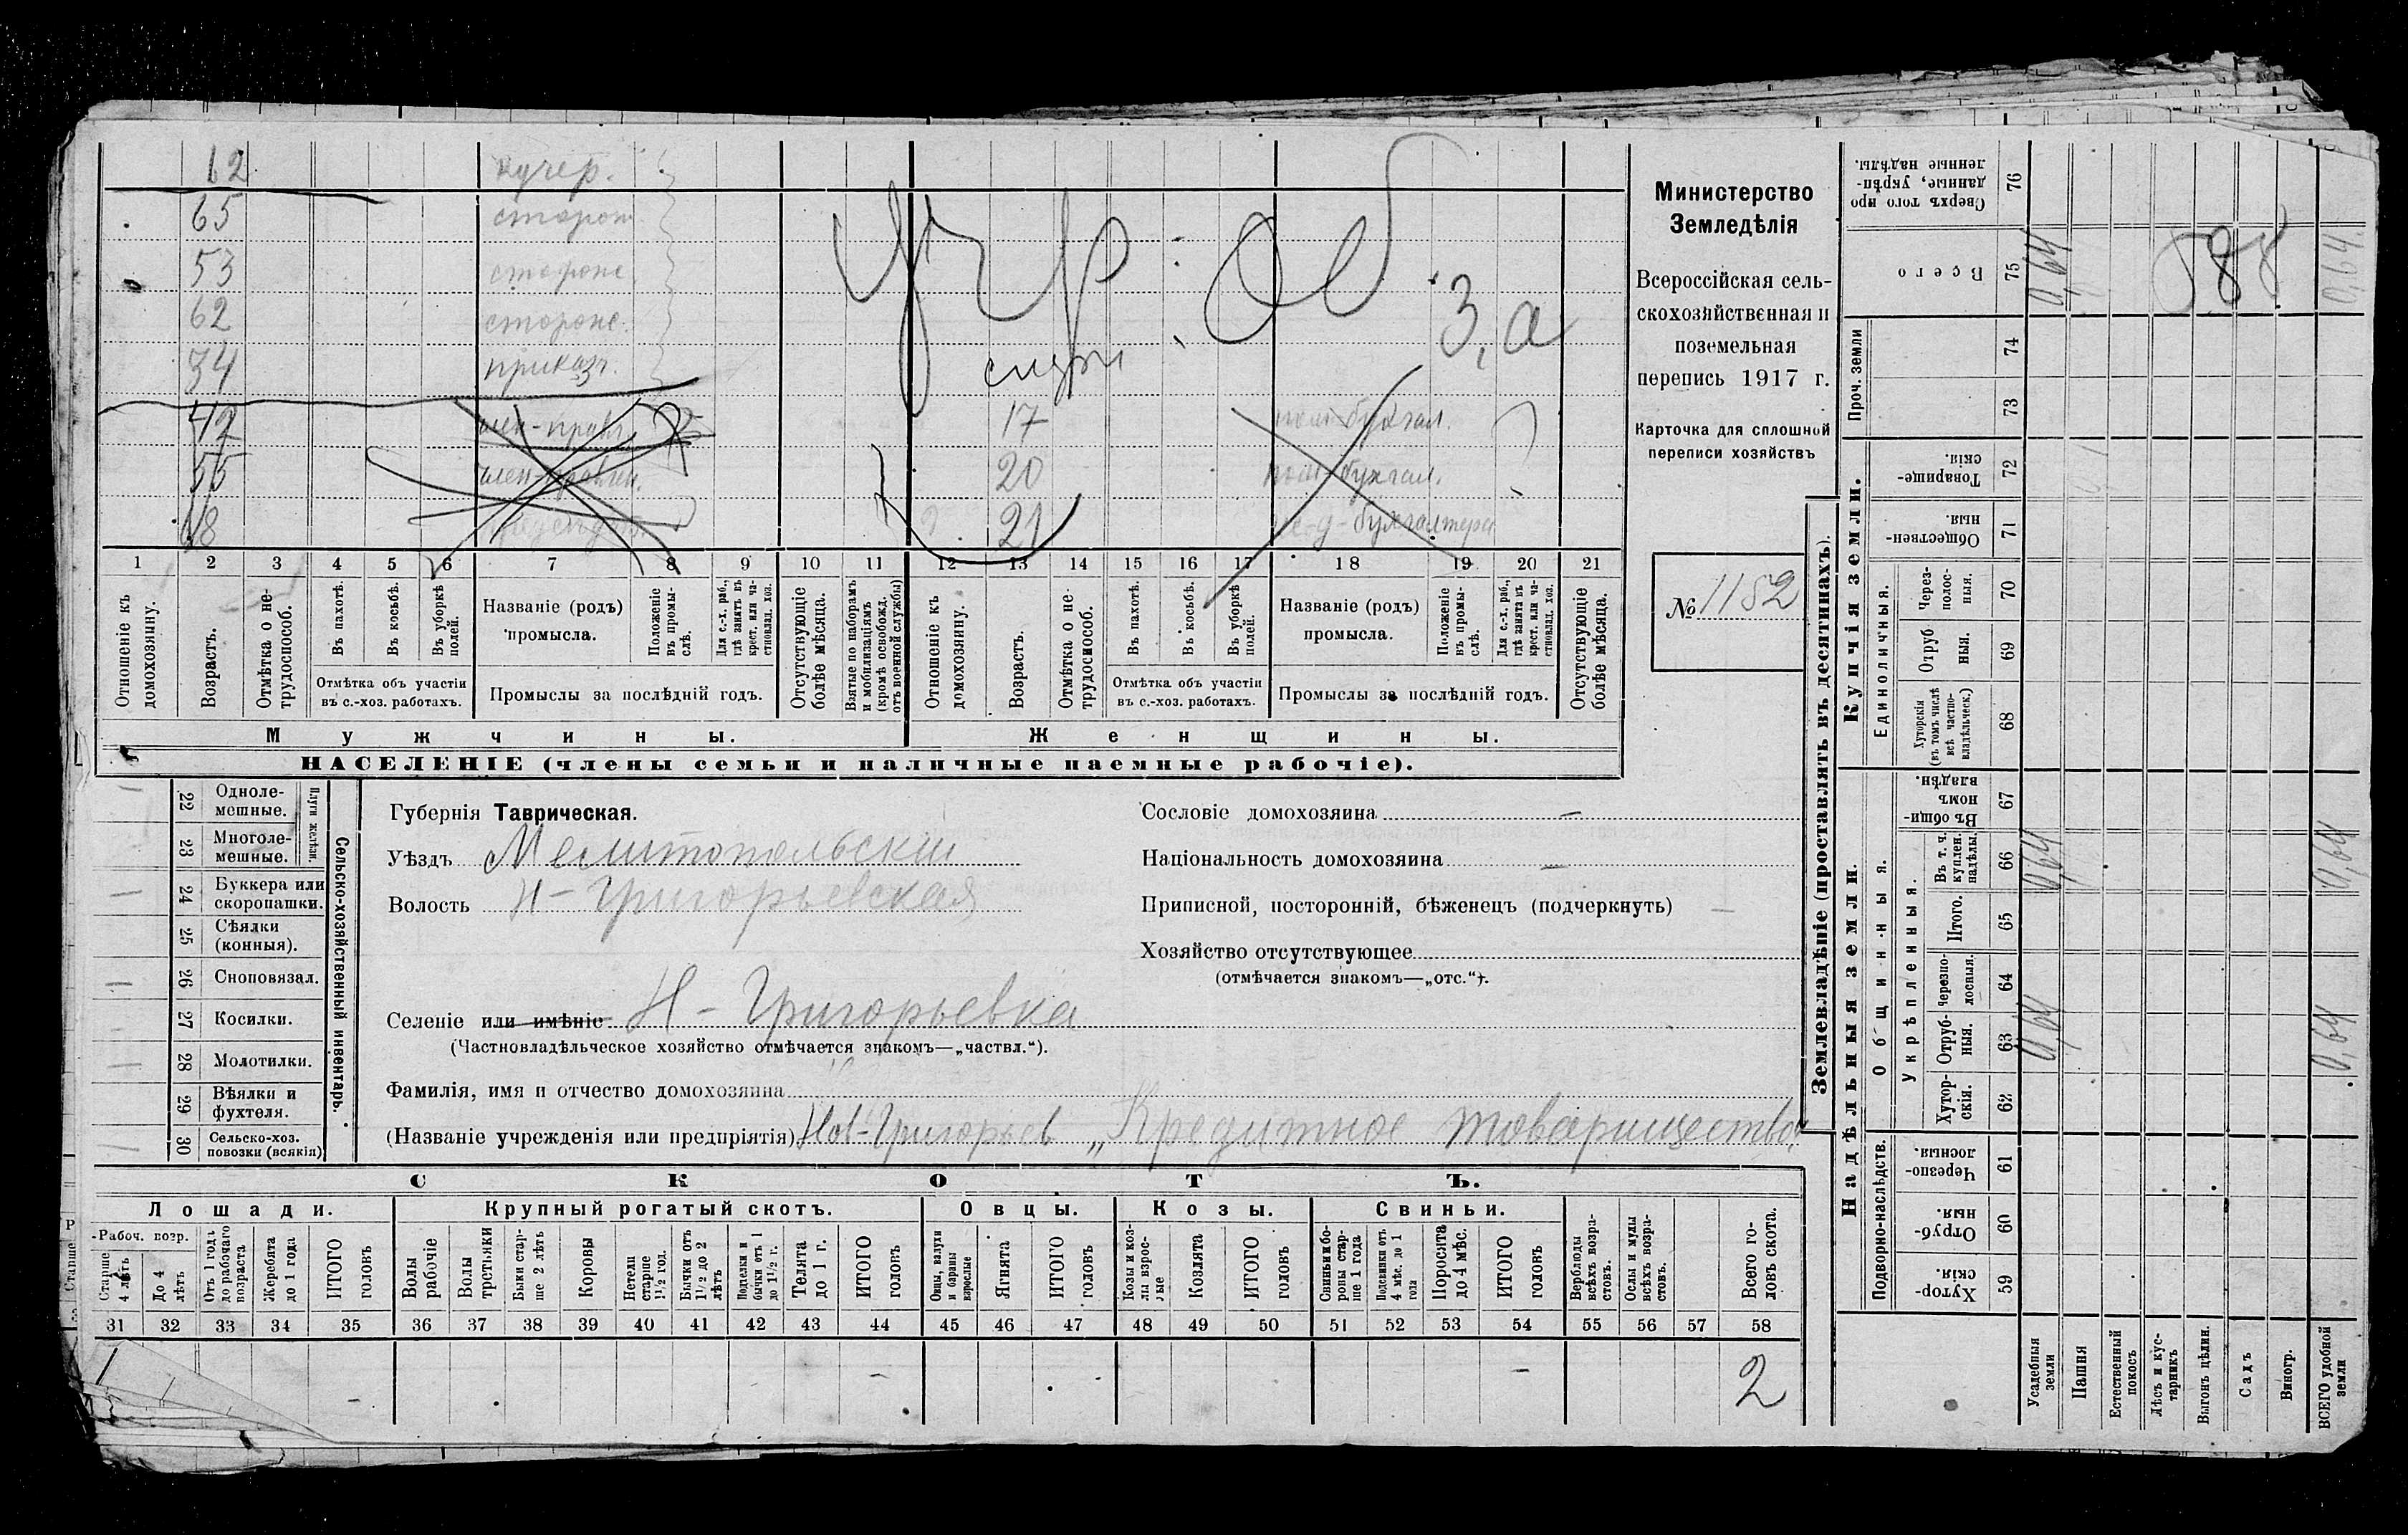 62 кучер.
65 сторож
53 сторож
62 сторож.
34 приказ.
42 член-правл.
55 член-правлен.
68
Учр. об. 3, а
служ
17 пом-бухгал.
20 пом-бухгал.
21 бухгалтера
1 2 3 4 5 6 7 8 9 10 11 12 13 14 15 16 17 18 19 20 21
Отношеніе къ домохозяину.
Возрастъ.
Отмѣтка о нетрудоспособ.
Въ пахотѣ.
Въ косьбѣ.
Въ уборкѣ полей.
Отмѣтка объ участіи въ с.-хоз. работахъ.
Названіе (родъ) промысла.
Положеніе въ промыслѣ.
Для с.-х. раб., гдѣ занятъ въ крест. или частновлад. хоз.
Промыслы за послѣдній годъ.
Отсутствующіе болѣе мѣсяца.
Взятые по наборамъ и мобилизаціямъ (кромѣ освобожд. отъ военной службы)
Отношеніе къ домохозяину.
Возрастъ.
Отмѣтка о нетрудоспособ.
Въ пахотѣ.
Въ косьбѣ.
Въ уборкѣ полей.
Отмѣтка объ участіи въ с.-хоз. работахъ.
Названіе (родъ) промысла.
Положеніе въ промыслѣ.
Для с.-х. раб., гдѣ занята въ крест. или частновлад. хоз.
Промыслы за послѣдній годъ.
Отсутствующіе болѣе мѣсяца.
Мужчины.
Женщины.
НАСЕЛЕНІЕ (члены семьи и наличные наемные рабочіе).
Министерство
Земледѣлія
Всероссійская сель-
скохозяйственная и
поземельная
перепись 1917 г.
Карточка для сплошной
переписи хозяйствъ
№ 1182
Сельско-хозяйственный инвентарь.
Плуги желѣзн.
22 Однолемешные.
23 Многолемешные.
24 Буккера или скоропашки.
25 Сѣялки (конныя).
26 Сноповязал.
27 Косилки.
28 Молотилки.
29 Вѣялки и фухтеля.
30 Сельско-хоз. повозки (всякія)
Губернія Таврическая.
Уѣздъ Мелитопольскій
Волость Н-Григорьевская
Селеніе или имѣніе Н-Григорьевка
(Частновладѣльческое хозяйство отмѣчается знакомъ—„частвл.“).
Фамилія, имя и отчество домохозяина
(Названіе учрежденія или предпріятія) Нов-Григорьев „Кредитное товарищество“
Сословіе домохозяина —
Національность домохозяина —
Приписной, посторонній, бѣженецъ (подчеркнуть) —
Хозяйство отсутствующее
(отмѣчается знакомъ—„отс.“).
СКОТЪ.
Лошади.
Крупный рогатый скотъ.
Овцы.
Козы.
Свиньи.
Рабоч. возр.
Старше 4 лѣтъ
До 4 лѣтъ
Отъ 1 года до рабочаго возраста
Жеребята до 1 года
ИТОГО головъ
Волы рабочіе
Волы третьяки
Быки старше 2 лѣтъ
Коровы
Нетели старше 1½ год.
Бычки отъ 1½ до 2 лѣтъ
Подтелки и бычки отъ 1 до 1½ г.
Телята до 1 г.
ИТОГО головъ
Овцы, валухи и бараны взрослые
Ягнята
ИТОГО головъ
Козы и козлы взрослые
Козлята
ИТОГО головъ
Свиньи и боровы старше 1 года
Подсвинки отъ 4 мѣс. до 1 года
Поросята до 4 мѣс.
ИТОГО головъ
Верблюды всѣхъ возрастовъ.
Ослы и мулы всѣхъ возрастовъ.
Всего головъ скота.
31 32 33 34 35 36 37 38 39 40 41 42 43 44 45 46 47 48 49 50 51 52 53 54 55 56 57 58
2
Землевладѣніе (проставлять въ десятинахъ).
Надѣльныя земли.
Купчія земли.
Проч. земли
Подворно-наслѣдств.
Общинныя.
Укрѣпленныя.
Единоличныя.
59 Хуторскія.
60 Отрубныя.
61 Черезполосныя.
62 Хуторскія.
63 Отрубныя.
64 Черезполосныя.
65 Итого.
66 Въ т. ч. куплен. надѣлы.
67 Въ общинномъ владѣн.
68 Хуторскія (въ томъ числѣ всѣ частновладѣльческ.)
69 Отрубныя.
70 Черезполосныя.
71 Общественныя.
72 Товарищескія.
73
74
75 Всего
76 Сверхъ того проданные, укрѣпленные надѣлы.
Усадебныя земли
Пашня
Естественный покосъ
Лѣсъ и кустарникъ
Выгонъ цѣлин.
Садъ
Виногр.
ВСЕГО удобной земли
0,64
0,64
0,64
588
0,64
0,64
0,64